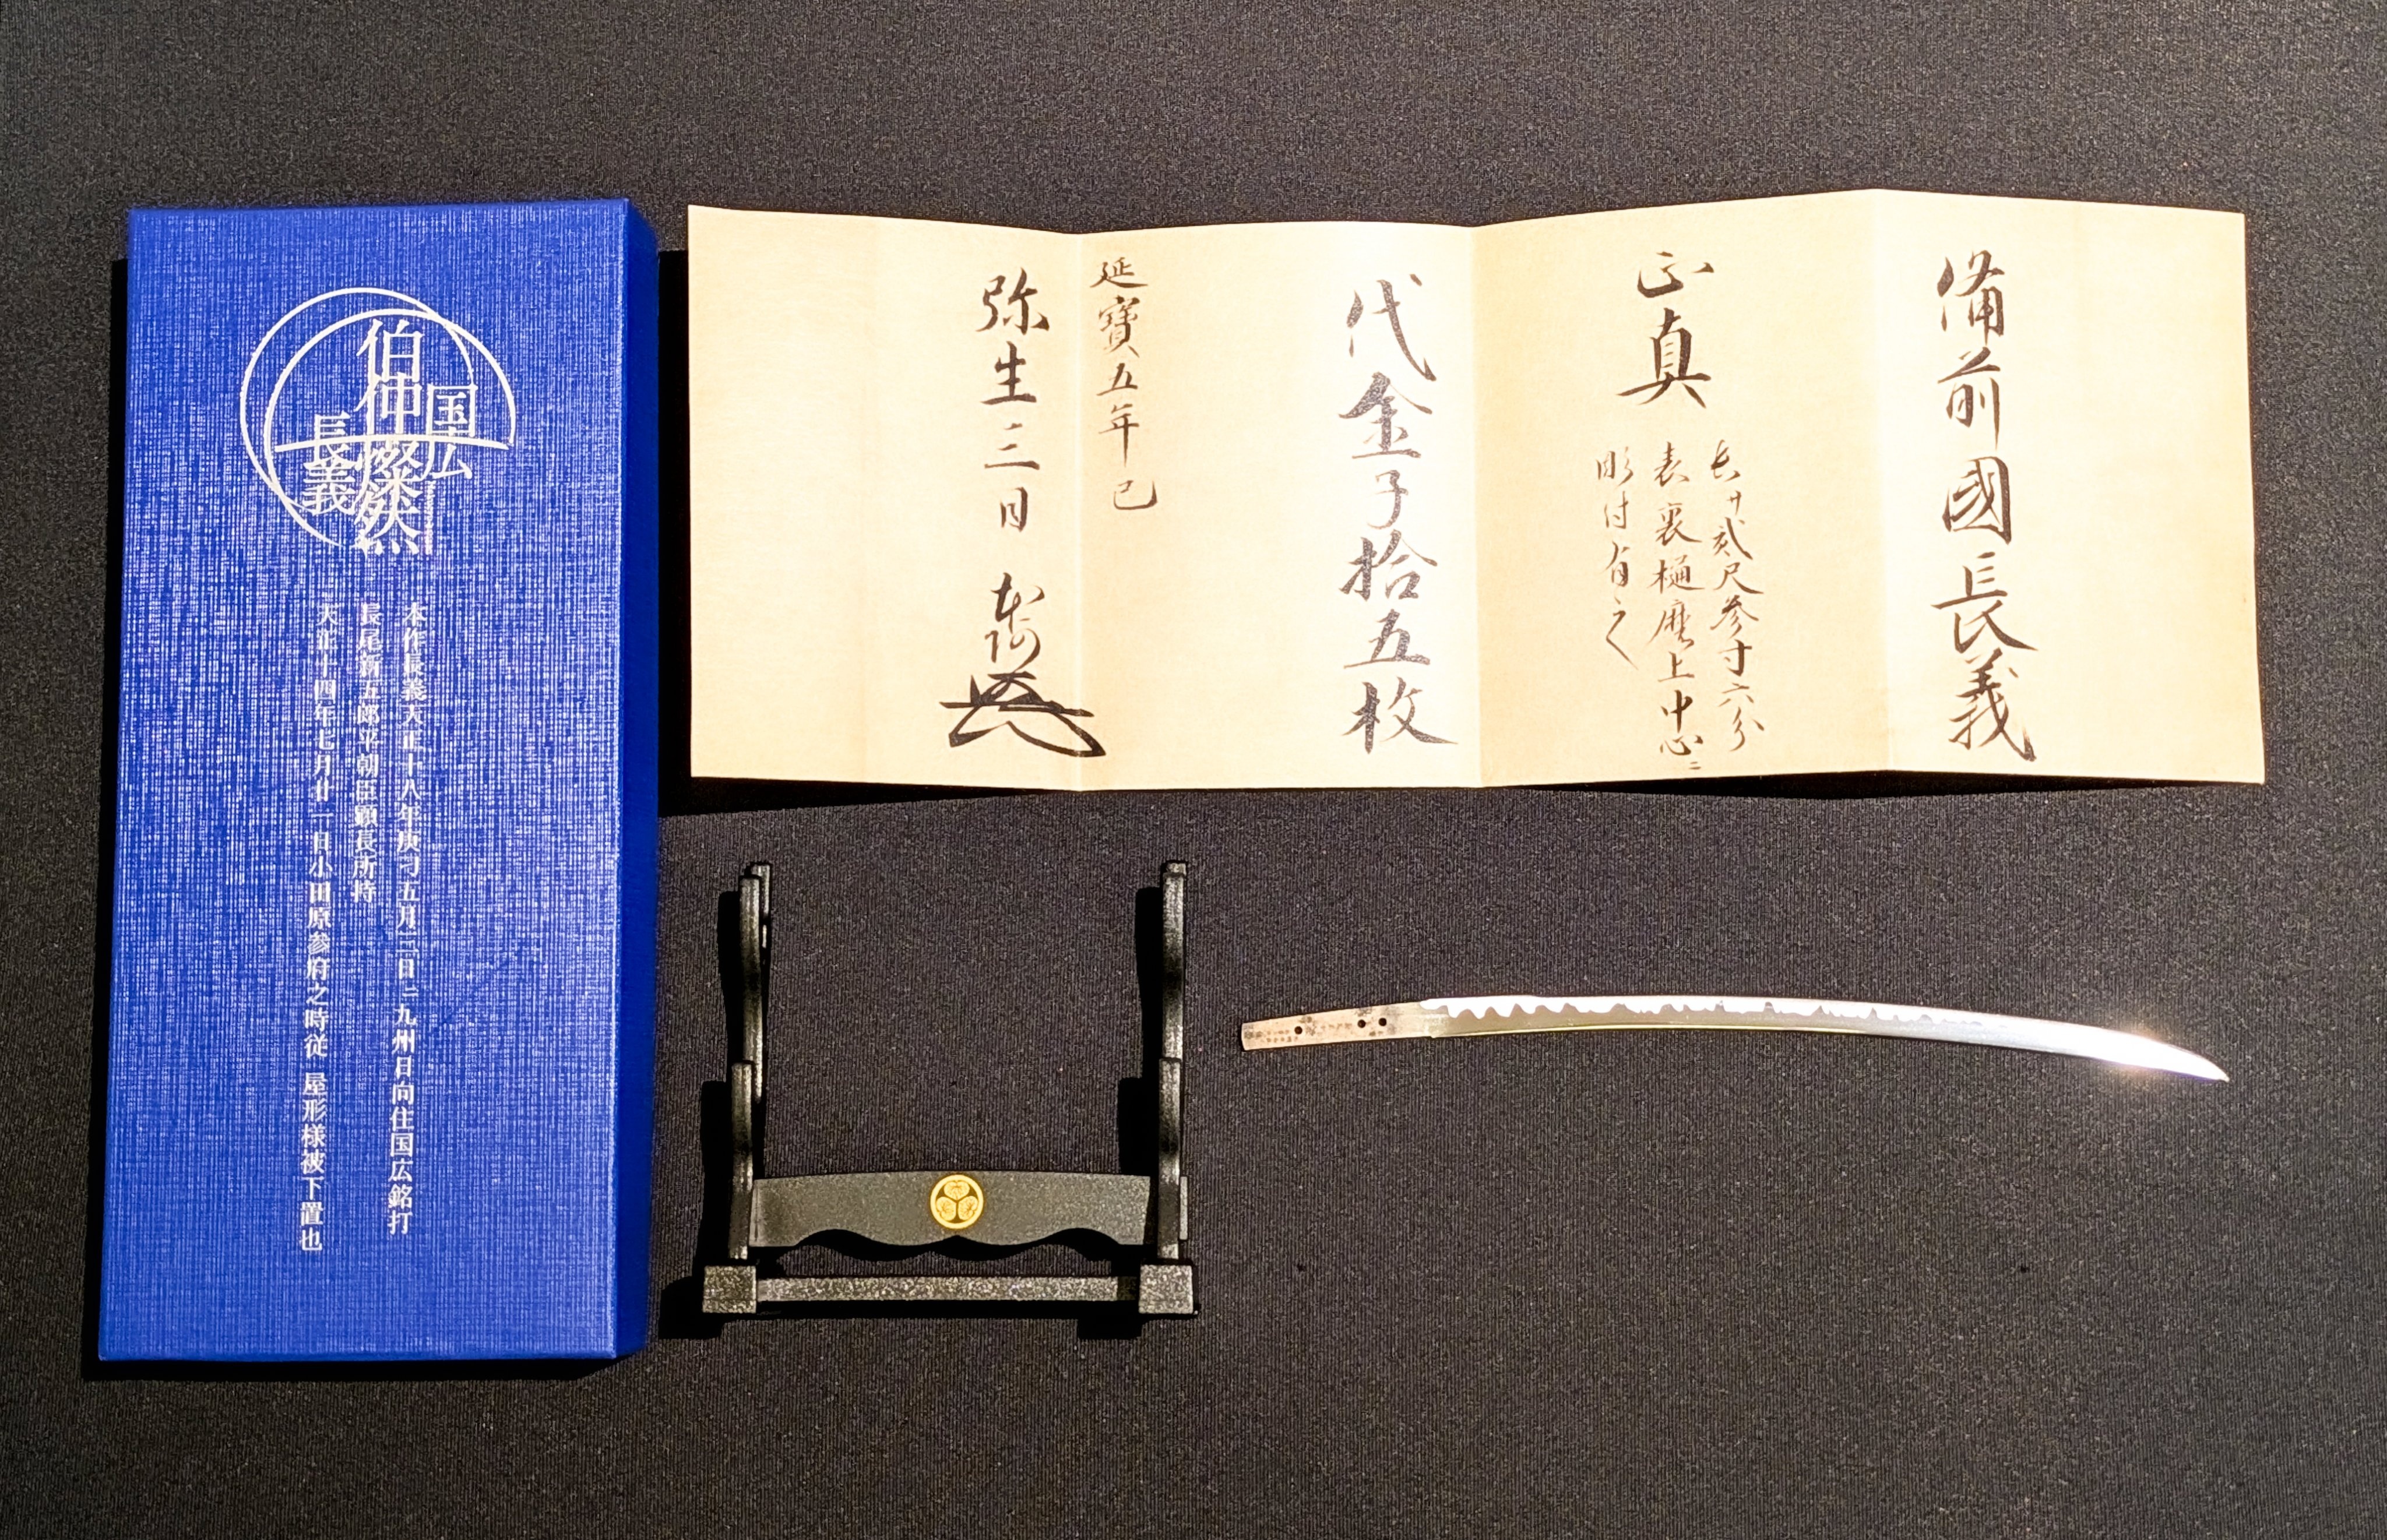 伯仲燦然
国広
長義
本作長義天正十八年庚刁五月三日ニ九州日向住国広銘打
長尾新五郎平朝臣顕長所持
天正十四年七月廿一日小田原参府之時従 屋形様被下置也
備前國長義
正真
長サ貳尺参寸六分
表裏樋磨上中心ニ
彫付有之
代金子拾五枚
延寳五年巳
弥生三日 本阿